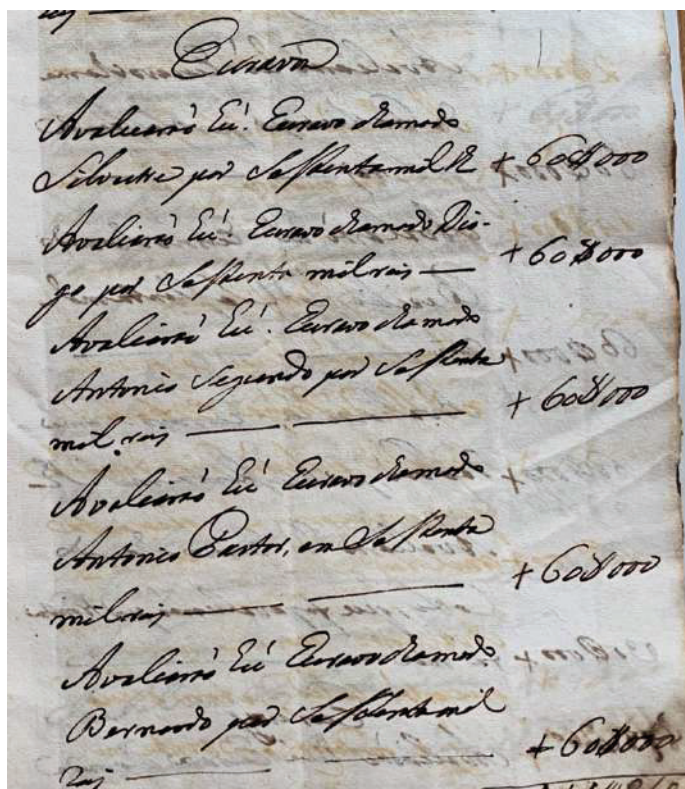 Escravos
Avaliarão hũ Escravo chamado
Silvestre por Sessenta mil Rs + 60$000
Avaliarão hũ Escravo chamado Dio-
go por Sessenta mil rais — + 60$000
Avaliarão hũ Escravo chamado
Antonio Segundo por Sessenta
mil rais — — + 60$000
Avaliarão hũ Escravo chamado
Antonio Pastor, em Sessenta
mil rais — — + 60$000
Avaliarão hũ Escravo chamado
Bernardo por Sessenta mil
Rais — — + 60$000